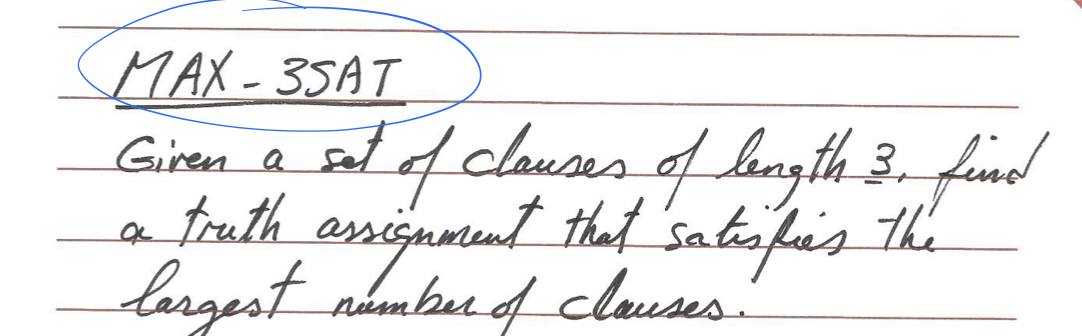 MAX - 3SAT
Given a set of clauses of length 3, find
a truth assignment that satisfies the
largest number of clauses.